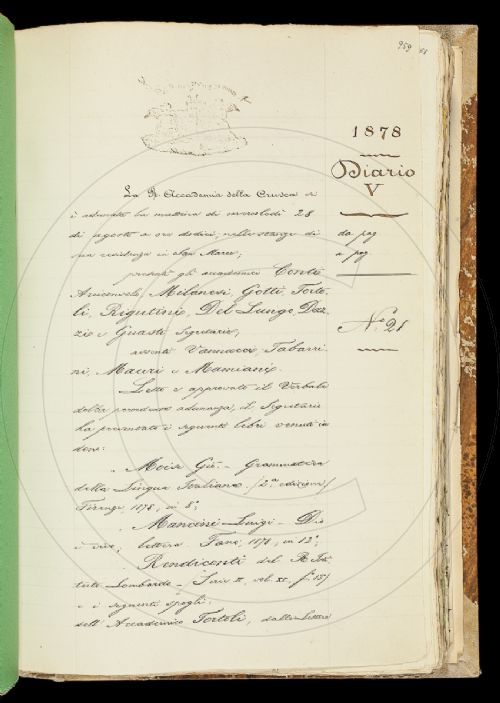 959
1878
Diario
V
da pag
a pag.
N.º 21
La R. Accademia della Crusca si
è adunata la mattina di mercoledì 28
di agosto a ore dodici, nelle stanze di
sua residenza in San Marco;
presenti gli accademici Conti
Arciconsolo, Milanesi, Gotti, Torto-
li, Rigutini, Del Lungo, Daz-
zi e Guasti Segretario;
assenti Vannucci, Tabarri-
ni, Mauri e Mamiani.
Letto e approvato il Verbale
della precedente adunanza, il Segretario
ha presentato i seguenti libri venuti in
dono:
Moise Gio. - Grammatica
della Lingua Italiana. (2.a edizione)
Firenze, 1878, in 8.°;
Mancini Luigi - Dio
è vivo; lettera. Fano, 1878, in 12.°;
Rendiconti del R. Isti-
tuto Lombardo - Serie II, vol. XI, f.°
e i seguenti spogli;
dell'Accademico Tortoli, dalle Lettere